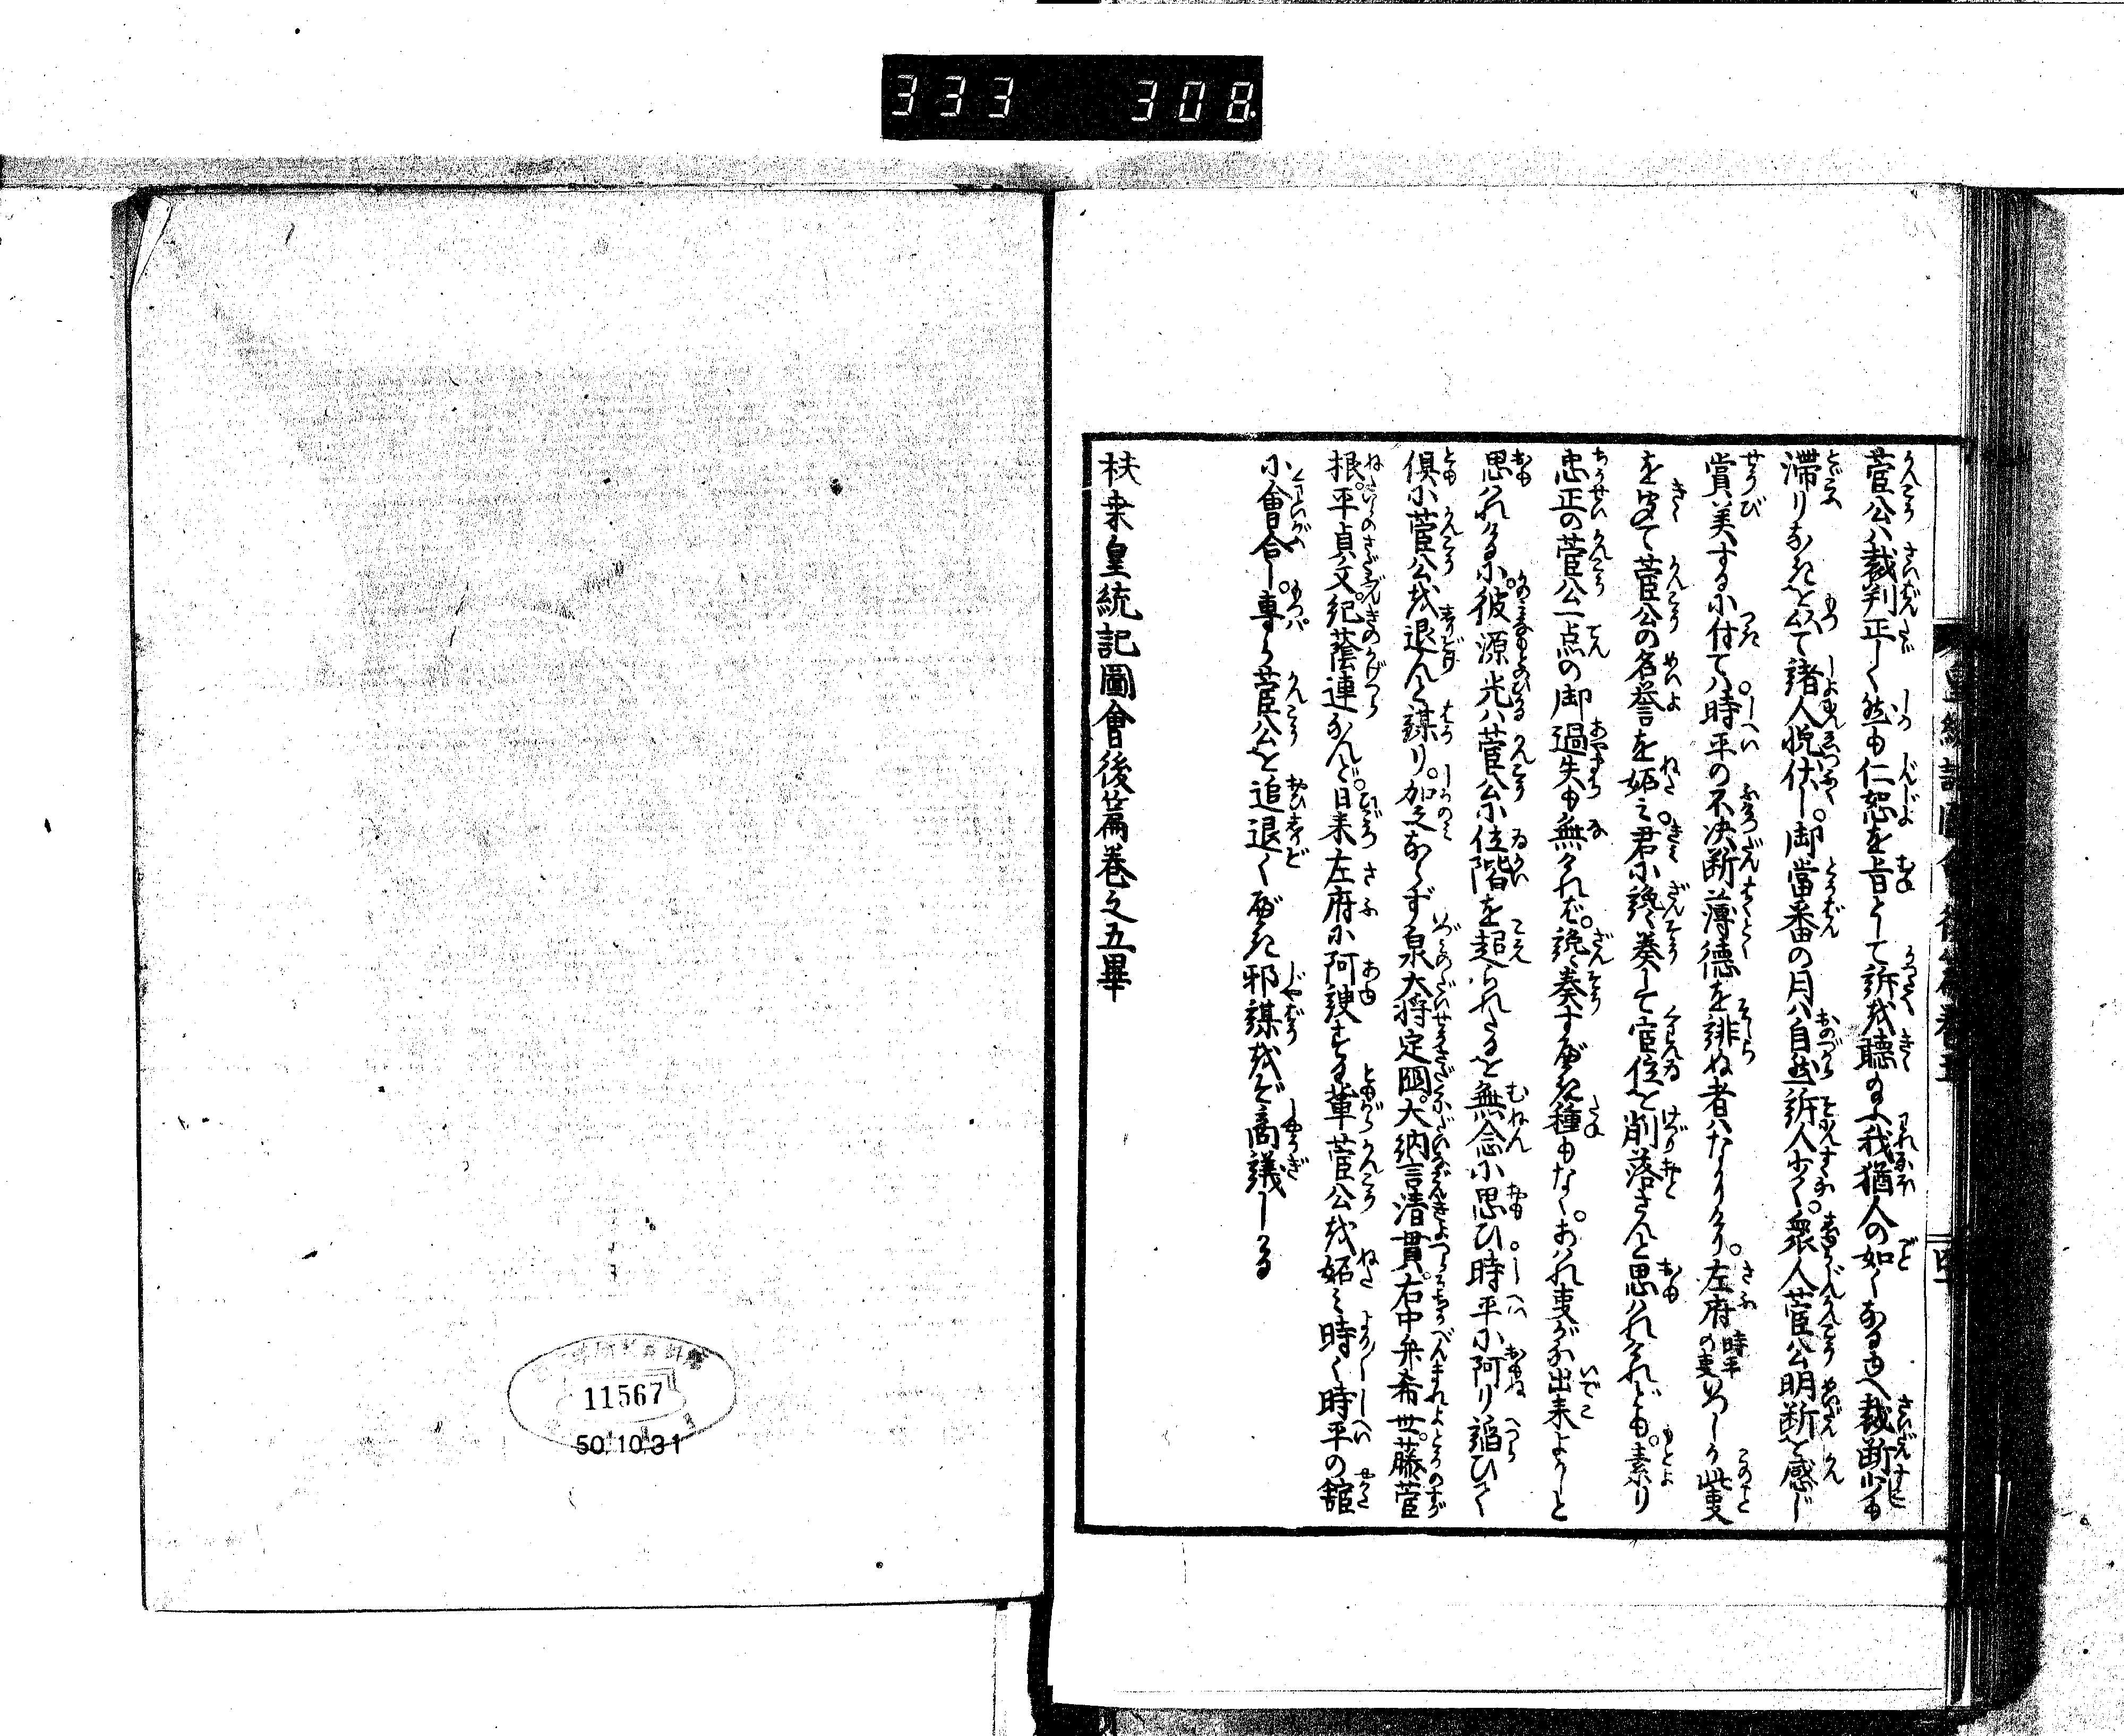 333 308
菅公ハ裁判正しく然も仁恕を旨として訴を聴給へ我猶人の如くなるゆへ裁断少も
滞りなきを以て諸人悦伏し。御當番の月ハ自然訴人少く。衆人菅公明断を感じ
賞美するに付てハ時平の不決断薄徳を誹ぬ者ハなかりけり。左府時平の事いつしか此事
を聞て菅公の名誉を妬み。君に讒奏して官位を削落さんと思ハれけれども。素り
忠正の菅公一点の御過失も無れバ。讒奏すべき種もなく。あハれ事がな出来よかしと
思ハれけるに。彼源光ハ菅公に位階を超られたるを無念に思ひ時平に阿り諂ひて
倶に菅公を退んと謀り。加之ならず泉大将定國。大納言清貫。右中弁希世。藤菅
根。平貞文。紀蔭連なんど。日来左府に阿諛する輩菅公を妬み時々時平の舘
に會合し。専ら菅公を追退くべき邪謀をぞ商議しける
扶桒皇統記圖會後篇巻之五畢
11567
50.10.31